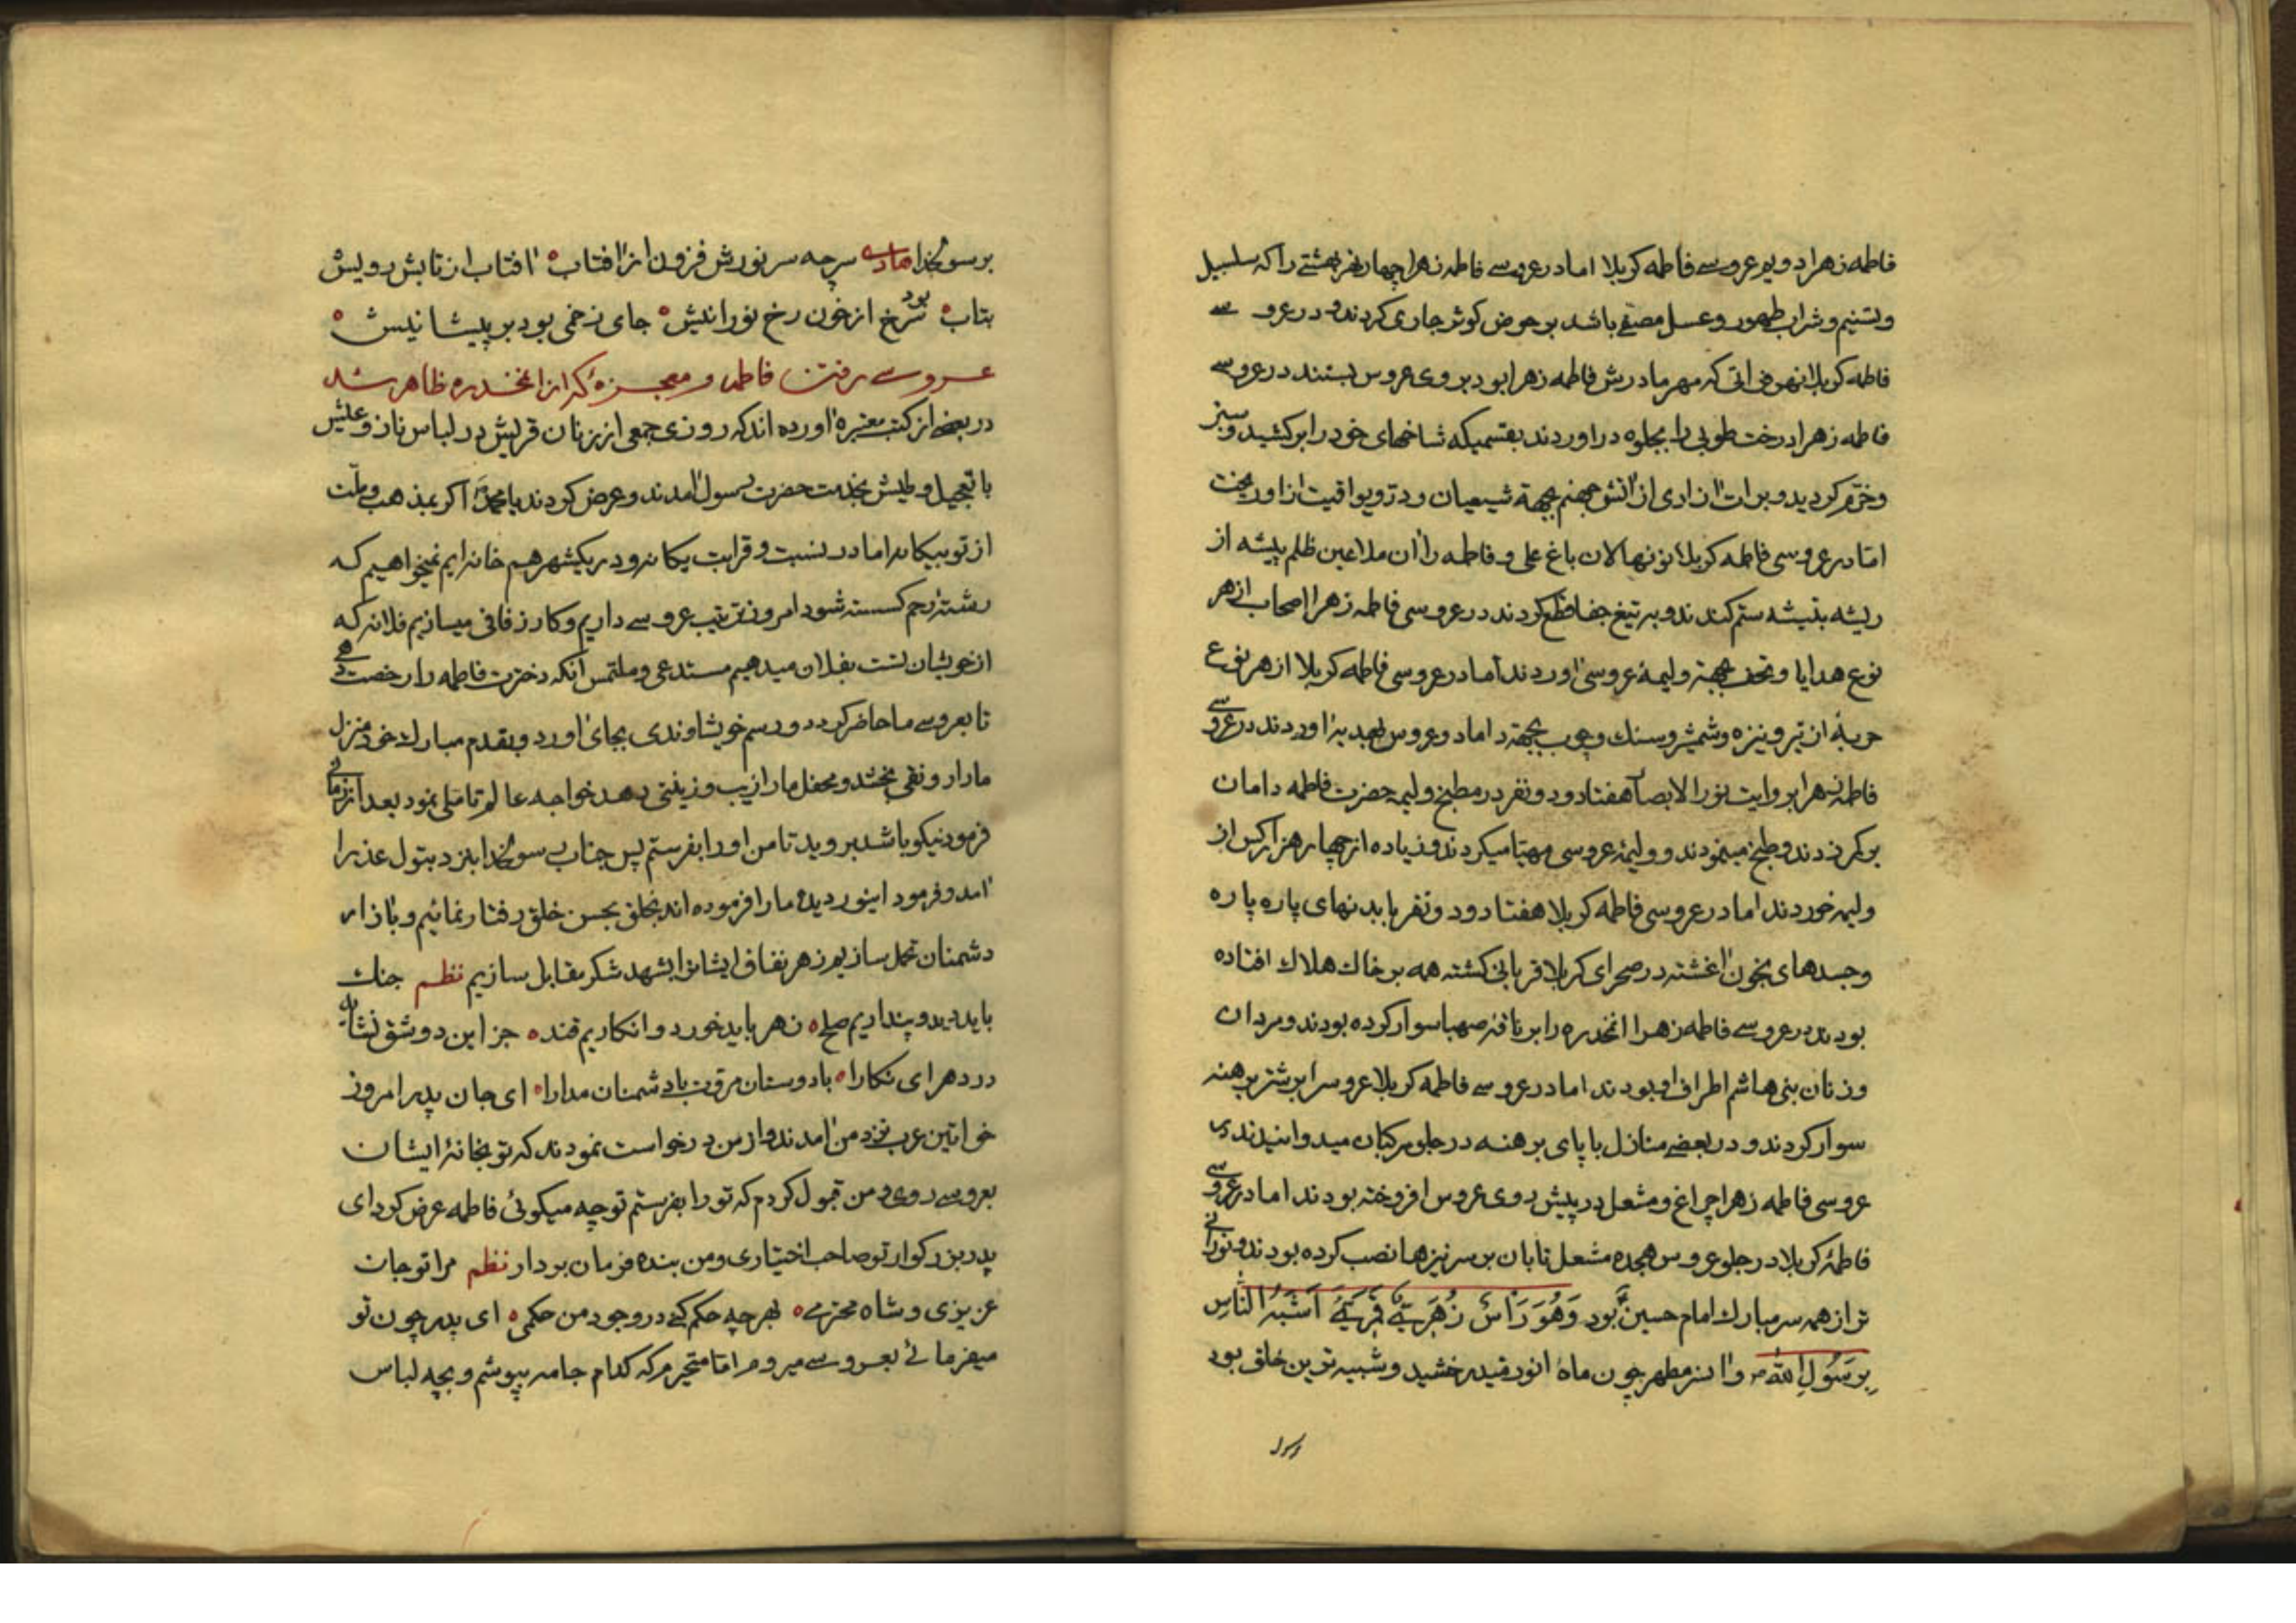 فاطمه زهرا دویم عروسے فاطمه کربلا اما در عروسے فاطمه زهرا چهار نهر بهشتے را که سلسبیل
و تسنیم و شراب طهور و عسل مصفے باشد بر حوض کوثر جاری کردند و در عروسے
فاطمه کربلا نهر فراتی که مهر مادرش فاطمه زهرا بود بروی عروس بستند در عروسے
فاطمه زهرا درخت طوبی را بجلوه در اوردند بقسمیکه شاخهای خود را بر کشید و سبز
و خرّم کردید و برات ازادی از اتش جهنم بجهة شیعیان و در و یواقیت از او ریخت
امّا در عروسی فاطمه کربلا نونهالان باغ علی و فاطمه را ان ملاعین ظلم پیشه از
ریشه بتیشه ستم کندند و به تیغ جفا قطع کردند در عروسی فاطمه زهرا اصحاب از هر
نوع هدایا و تحف بجهتر ولیمهٔ عروسی اوردند اما در عروسی فاطمه کربلا از هر نوع
حربهٔ از تیر و نیزه و شمشیر و سنك و چوب بجهته داماد و عروس بهدیه اوردند در عروسے
فاطمه زهرا بروایت نور الابصار هفتاد و دو نفر در مطبخ ولیمه حضرت فاطمه دامان
بر کمر زدند و طبخ مینمودند و ولیمهٔ عروسی مهیّا میکردند و زیاده از چهار هزار کس از
ولیمه خوردند اما در عروسی فاطمه کربلا هفتاد و دو نفر با بدنهای پاره پاره
و جسدهای بخون اغشته در صحرای کربلا قربانی کشته همه بر خاك هلاك افتاده
بودند در عروسے فاطمه زهرا انمخدره را بر ناقه صهبا سوار کرده بودند و مردان
و زنان بنی هاشم اطراف او بودند اما در عروسے فاطمه کربلا عروس را بر شتر برهنه
سوار کردند و در بعضے منازل با پای برهنه در جلو مرکبان میدوانیدند در
عروسی فاطمه زهرا چراغ و مشعل در پیش روی عروس افروخته بودند اما در عروسے
فاطمهٔ کربلا در جلو عروس هجده مشعل تابان بر سر نیزها نصب کرده بودند و نورانے
تر از همه سر مبارك امام حسین بود وَهُوَ رَأسٌ زُهَرِیٌّ قَمَرِیٌّ اَشبَهُ النّاسِ
بِرَسُولِ اللّٰهِ و ان سر مطهر چون ماه انور میدرخشید و شبیه ترین خلق بود
برسولخدا سرچه سر نورش فزون از افتاب افتاب از تابش رویش
بتاب سرخ از خون رخ نورانیش بود جای زخمی بود بر پیشانیش
عروسے رفتن فاطمه و معجزهٔ که از انمخدره ظاهر شد
در بعضے از کتب معتبره اورده اند که روزی جمعی از زنان قریش در لباس ناز و عیش
با تعجیل و طیش بخدمت حضرت رسول امدند و عرض کردند یا محمّد اکر بمذهب و ملّت
از تو بیکانه اما در نسبت و قرابت یکانه و در یکشهر هم خانه ایم نمیخواهیم که
رشتهٔ رحم کسسته شود امروز ترتیب عروسے داریم و کار زفافی میسازیم فلانه که
از خویشان تست بفلان میدهیم مستدعی و ملتمس انکه دخترت فاطمه را رخصت دهے
تا بعروسے ما حاضر کردد و رسم خویشاوندی بجای اورد و بقدم مبارك خود منزل
ما را رونقی بخشد و محفل ما را زیب و زینتی دهد خواجه عالم تاملی نمود بعد از زمانے
فرمود نیکو باشد بروید تا من او را بفرستم پس جناب رسولخدا بنزد بتول عذرا
امد و فرمود اینوردیده ما را فرموده اند بخلق بحسن خلق رفتار نمائیم و با زار
دشمنان تحمل سازیم زهر نفاق ایشانرا بشهد شکر مقابل سازیم نظم جنك
باید دید و پنداریم صلح زهر باید خورد و انکاریم قند جز این دو شق نشاید
در دهر ای نکارا با دوستان مروت با دشمنان مدارا ای جان پدر امروز
خواتین عرب نزد من امدند و از من درخواست نمودند که تو بخانهٔ ایشان
بعروسے روی و من قبول کردم که تو را بفرستم تو چه میکوئی فاطمه عرض کرد ای
پدر بزرکوار تو صاحب اختیاری و من بنده فرمان بردار نظم مرا تو جان
عزیزی و شاه محترمے بهرچه حکم کنے در وجود من حکمی ای پدر چون تو
میفرمائے بعروسے میروم اما متحیرم که کدام جامه بپوشم و بچه لباس